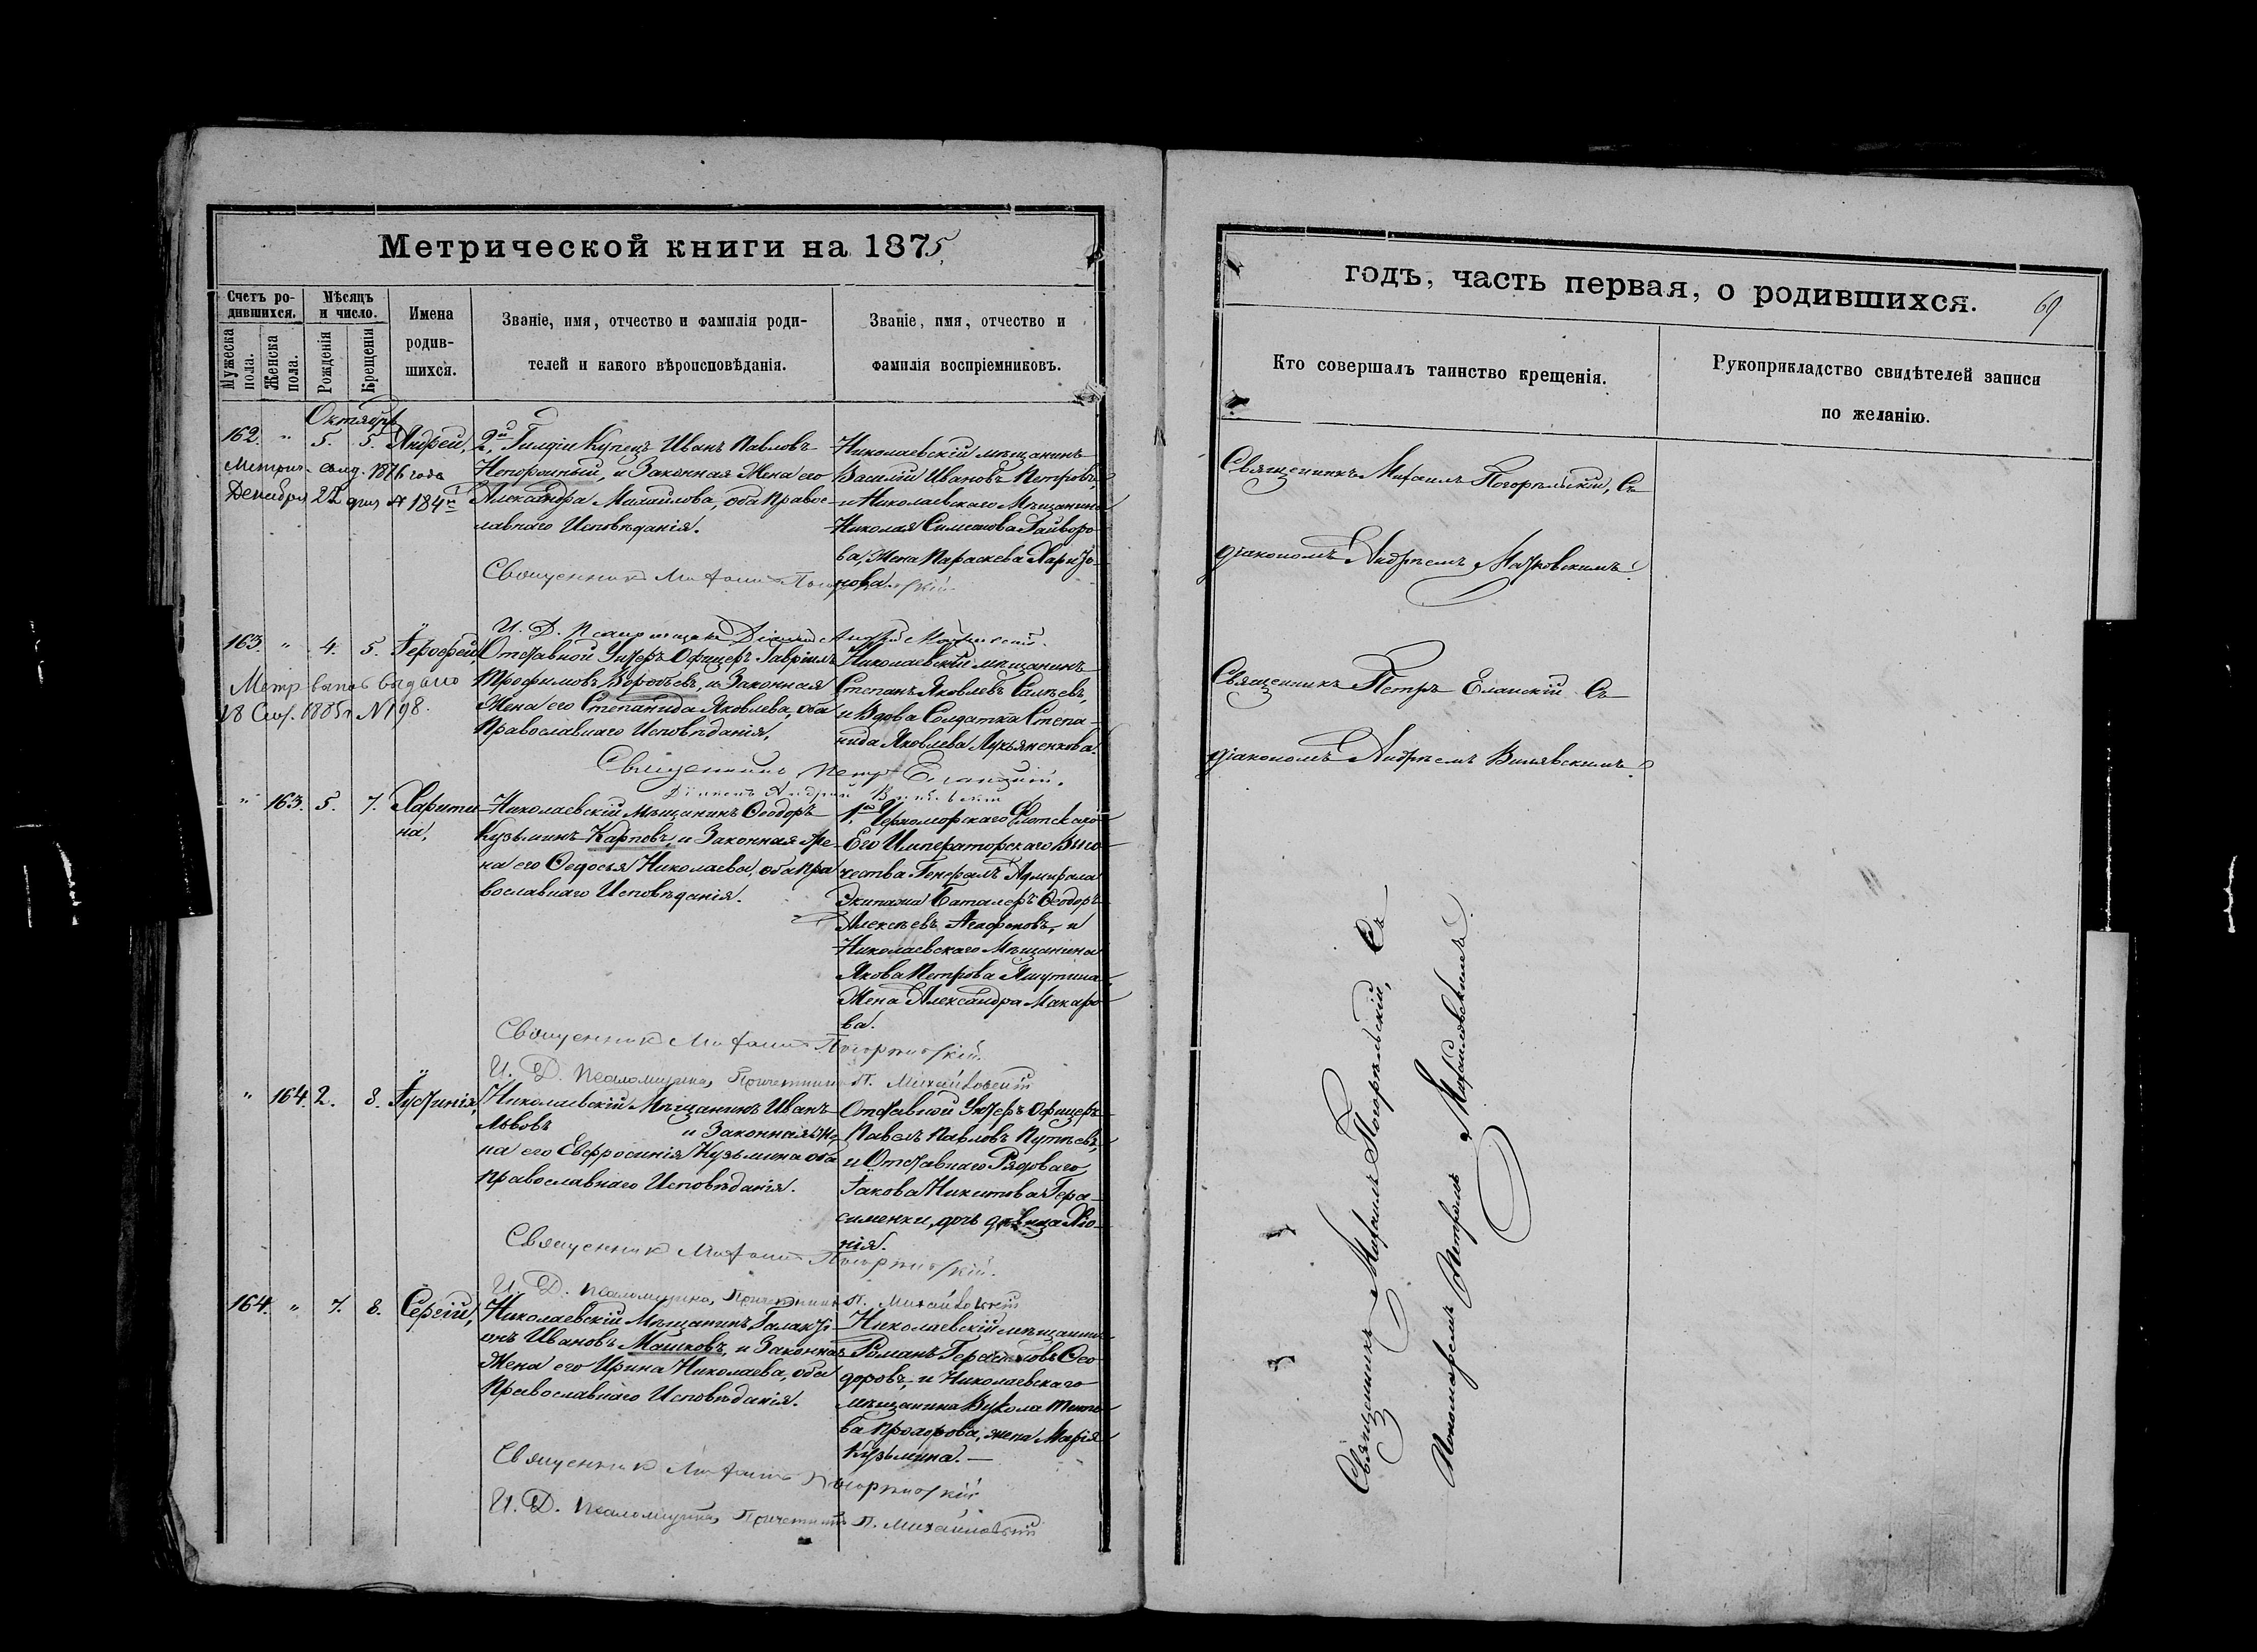 Метрической книги на 1875
Счетъ ро-
дившихся.
Мужеска
пола.
Женска
пола.
Мѣсяцъ
и число.
Рожденія
Крещенія
Имена
родив-
шихся.
Званіе, имя, отчество и фамилія роди-
телей и какого вѣроисповѣданія.
Званіе, имя, отчество и
фамилія воспріемниковъ.
Октябрь
162. " 5. 5. Андрей,
Метрич. свид. 1876 года
Декабря 22 дня № 184
2й Гилдіи Купецъ Иванъ Павловъ
Непорочный, и Законная Жена его
Александра Михайлова, оба Правос-
лавнаго Исповѣданія.
Николаевскій мѣщанинъ
Василій Ивановъ Петровъ,
и Николаевскаго Мѣщанина
Николая Симеонова Гайворо-
ва, Жена Параскева Харито-
нова.
Священникъ Михаилъ Погорѣльскій
И. Д. Псаломщика Діаконъ Андрей
163. " 4. 5. Ѣероѳей,
Метр. выпись выдана
18 1885 г. № 198.
Отставной Унтеръ Офицеръ Гавріилъ
Трофимовъ Воробьевъ, и Законная
Жена его Степанида Яковлева, оба
Православнаго Исповѣданія.
Николаевскій мѣщанинъ
Степанъ Яковлевъ
и Вдова Солдатка Степа-
нида Яковлева Лукьяненкова.
Священникъ Петръ Еланскій.
Діаконъ Андрей
" 163. 5. 7. Харити-
на,
Николаевскій Мѣщанинъ Ѳеодоръ
Кузьминъ Карповъ, и Законная Же-
на его Ѳедосья Николаева, оба Пра-
вославнаго Исповѣданія.
1го Черноморскаго Флотскаго
Его Императорскаго Высо-
чества Генералъ Адмирала
Экипажа Баталеръ Ѳеодоръ
Алексѣевъ Агафоновъ, и
Николаевскаго Мѣщанина
Якова Петрова
Жена Александра Макаро-
ва.
Священникъ Михаилъ Погорѣльскій
И. Д. Псаломщика, Причетникъ П. Михайловскій
" 164. 2. 8. Іустинія,
Николаевскій Мѣщанинъ Иванъ
Львовъ и Законная Же-
на его Евфросинія Кузьмина оба
Православнаго Исповѣданія.
Отставной Унтеръ Офицеръ
Павелъ Павловъ
и Отставнаго Рядоваго
Іакова Никитова Гера-
сименки, дочь дѣвица
нія.
Священникъ Михаилъ Погорѣльскій.
И. Д. Псаломщика, Причетникъ П. Михайловскій
164. " 7. 8. Сергій,
Николаевскій Мѣщанинъ Галакті-
онъ Ивановъ Машковъ, и Законная
Жена его Ирина Николаева, оба
Православнаго Исповѣданія.
Николаевскій мѣщанинъ
Романъ Герасимовъ Ѳео-
доровъ, и Николаевскаго
мѣщанина Вукола
ва Прохорова, жена Марія
Кузьмина.
Священникъ Михаилъ Погорѣльскій
И. Д. Псаломщика, Причетникъ П. Михайловскій
годъ, часть первая, о родившихся.
69
Кто совершалъ таинство крещенія.
Рукоприкладство свидѣтелей записи
по желанію.
Священникъ Михаилъ Погорѣльскій, Съ
діакономъ Андреемъ
Священникъ Петръ Еланскій Съ
діакономъ Андреемъ
Священникъ Михаилъ Погорѣльскій, Съ
Пономаремъ Петромъ Михайловскимъ.